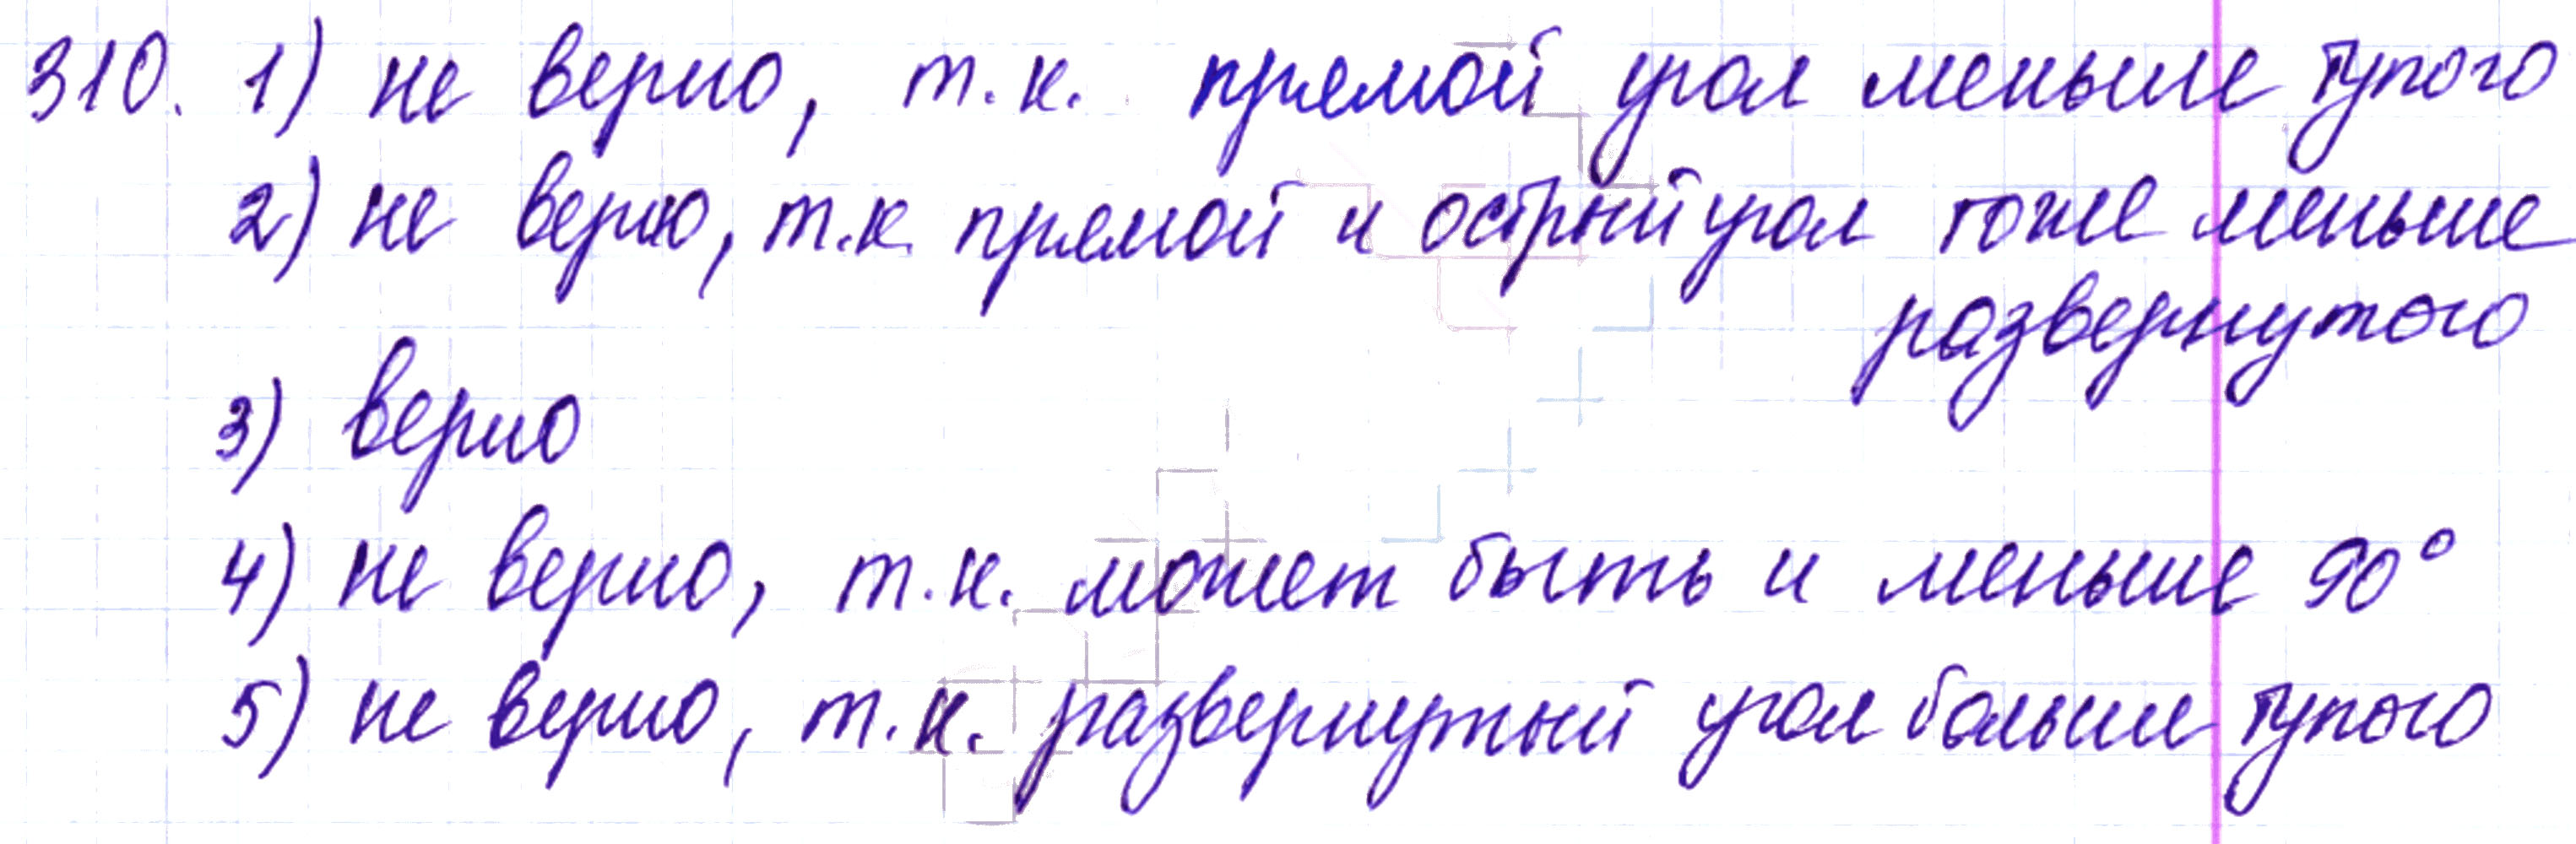 310. 1) не верно, т.к. прямой угол меньше тупого
2) не верно, т.к. прямой и острый угол тоже меньше
развернутого
3) верно
4) не верно, т.к. может быть и меньше 90°
5) не верно, т.к. развернутый угол больше тупого